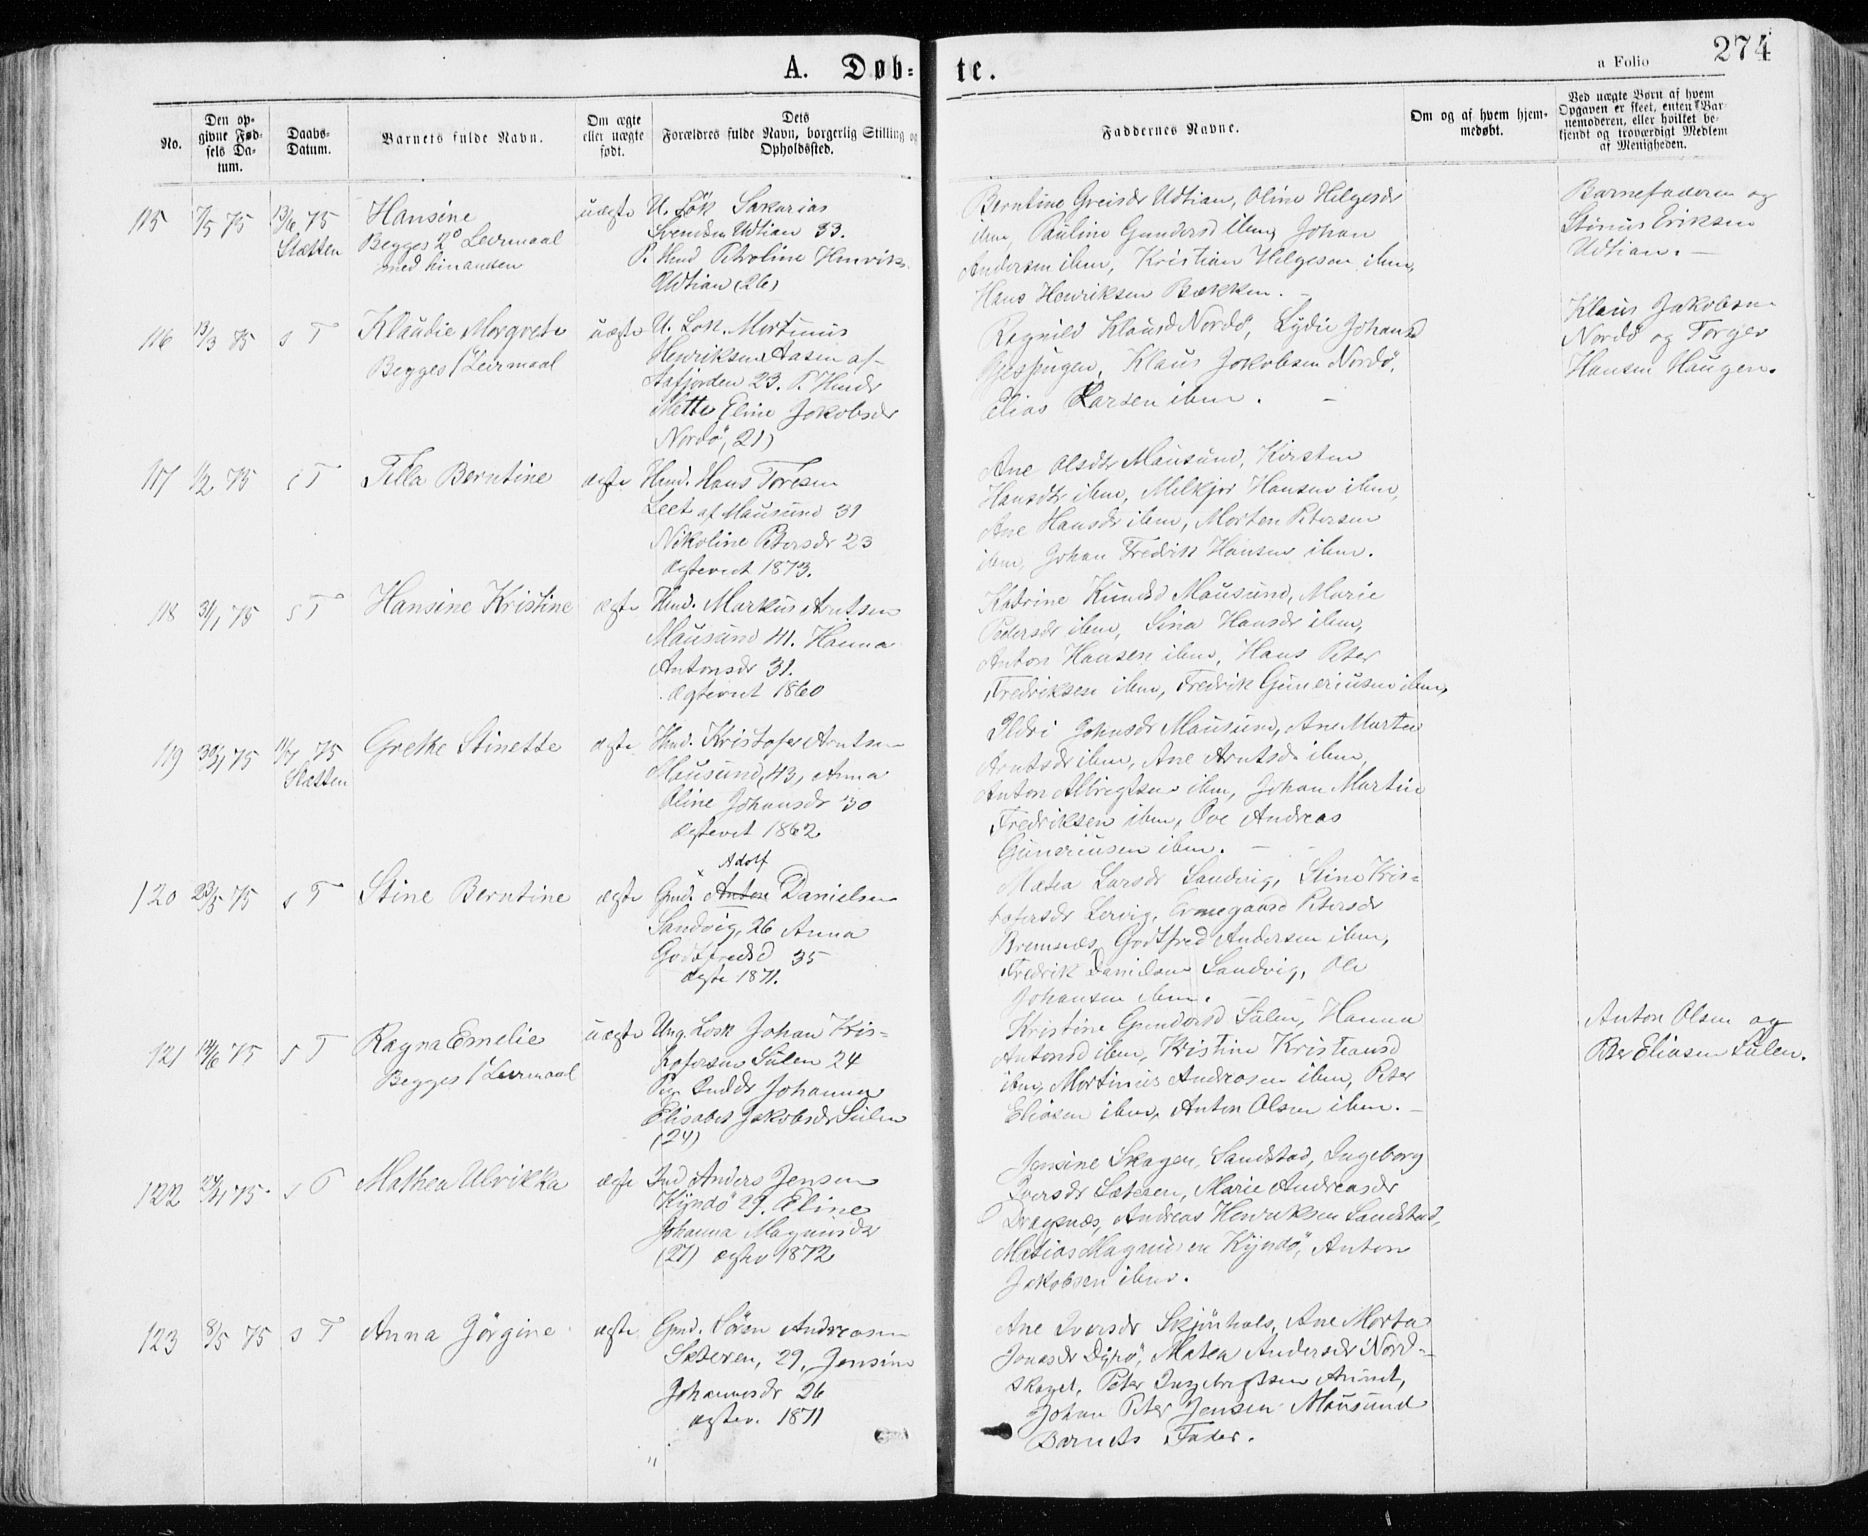 A. Døb=te.
a Folio
274
No.
Den op-
givne Fød-
sels Da-
tum.
Daabs-
Datum.
Barnets fulde Navn.
Om ægte
eller uægte
født.
Dets
Forældres fulde Navn, borgerlig Stilling og
Opholdssted.
Faddernes Navne.
Om og af hvem hjem-
medøbt.
Ved uægte Børn af hvem
Opgaven er skeet, enten Bar-
nemoderen, eller hvilket be-
kjendt og troværdigt Medlem
af Menigheden.
115 7/5 75 13/6 75
Slætten
Hansine
Begges 2° Leirmaal
med hinanden
uægte
U. Sakarias
Svendsen Udtian 33.
P. Petroline Henriks
Udtian (26)
Berntine Greisdr Udtian, Oline Helgesdr
ibm, Pauline Gundersd ibm, Johan
Andersen ibm, Kristian Helgesen ibm,
Hans Henriksen Bækken. -
Barnefaderen og
Stinus Eriksen
Udtian. -
116 13/3 75 s T
Klaudie Margrete
Begges 1° Leirmaal
uægte
U. Losk. Mortinus
Henriksen Aasen af
Aafjorden 23. P.
Mette Eline Jakobsdr
Nordø, 21)
Ragnild Klausd Nordø, Lydie Johansd
Klaus Jakobsen Nordø,
Elias Larsen ibm. -
Klaus Jakobsen
Nordø og Torger
Hansen Haugen.
117 1/2 75 s T
Tilla Berntine
ægte
Hmd. Hans Toresen
Leet af Mausund 31
Nikoline Petersdr 23
ægteviet 1873.
Ane Olsdtr Mausund, Kirsten
Hansdtr ibm, Melkjor Hansen ibm,
Ane Hansdr ibm, Morten Petersen
ibm, Johan Fredrik Hansen ibm.
118 31/1 75 s T
Hansine Kristine
ægte
Hmd. Markus Arntsen
Mausund 41. Hanna
Antonsdr 31.
ægteviet 1860
Katrine Mausund, Marie
Pedersdr ibm, Sina Hansdr ibm,
Anton Hansen ibm, Hans Peter
Fredriksen ibm, Fredrik Guneriusen ibm,
119 30/1 75 11/7 75
Slætten
Grethe Stinette
ægte
Hmd. Kristofer Arntsen
Mausund, 43, Anna
Oline Johansdr 30
ægteviet 1862
Ildri Johnsdr Mausund, Ane Marta
Arntsdr ibm, Ane Arntsd. ibm,
Anton Albrigtsen ibm, Johan Martin
Fredriksen ibm, Ove Andreas
Guneriusen ibm. -
120 23/5 75 s T
Stine Berntine
ægte
Adolf
Gmd. Anton Danielsen
Sandvig, 26 Anna
Godtfredsd 35
ægte 1871.
Matea Larsdr Sandvig, Stine Kris-
tofersdr Lervig, Ermegaard Petersdr
Bremnes, Godtfred Andersen ibm,
Fredrik Danielsen Sandvig, Ole
Johansen ibm.
121 14/6 75 s T
Ragna Emelie
Begges 1° Leirmaal
uægte
Ung. Losk Johan Kris-
tofersen Sulen 24
Johanna
Elisabet Jakobsdr Sulen
(24)
Kristine Gundersd Sulen, Hanna
Antonsd ibm, Kristine Kristiansd
ibm, Mortinus Andreasen ibm, Peter
Eliasen ibm, Anton Olsen ibm. -
Anton Olsen og
Per Eliasen Sulen.
122 75. s T
Mathea Ulrikka
ægte
Ind. Anders Jensen
Kjyndø 29. Eline
Johanna Magnusdr
(27) ægtev 1872
Jensine Skagen, Sandstad, Ingeborg
Iversdr Sæteren, Marie Andreasdr
Dragsnæs, Andreas Henriksen Sandstad,
Matias Magnusen Kjyndø, Anton
Jakobsen ibm.
123 8/5 75 s T
Anna Jørgine
ægte
Gmd. Søren Andreasen
Sæteren, 29, Jensine
Johannesdr 26
ægtev. 1871
"
Ane Iversdr Skjønhals, Ane Marta
Jonasdr Dyrø, Matea Andersdr Nord-
skaget, Peter Ingebrigtsen
Johan Peter Jensen Mausund
Barnets Fader.